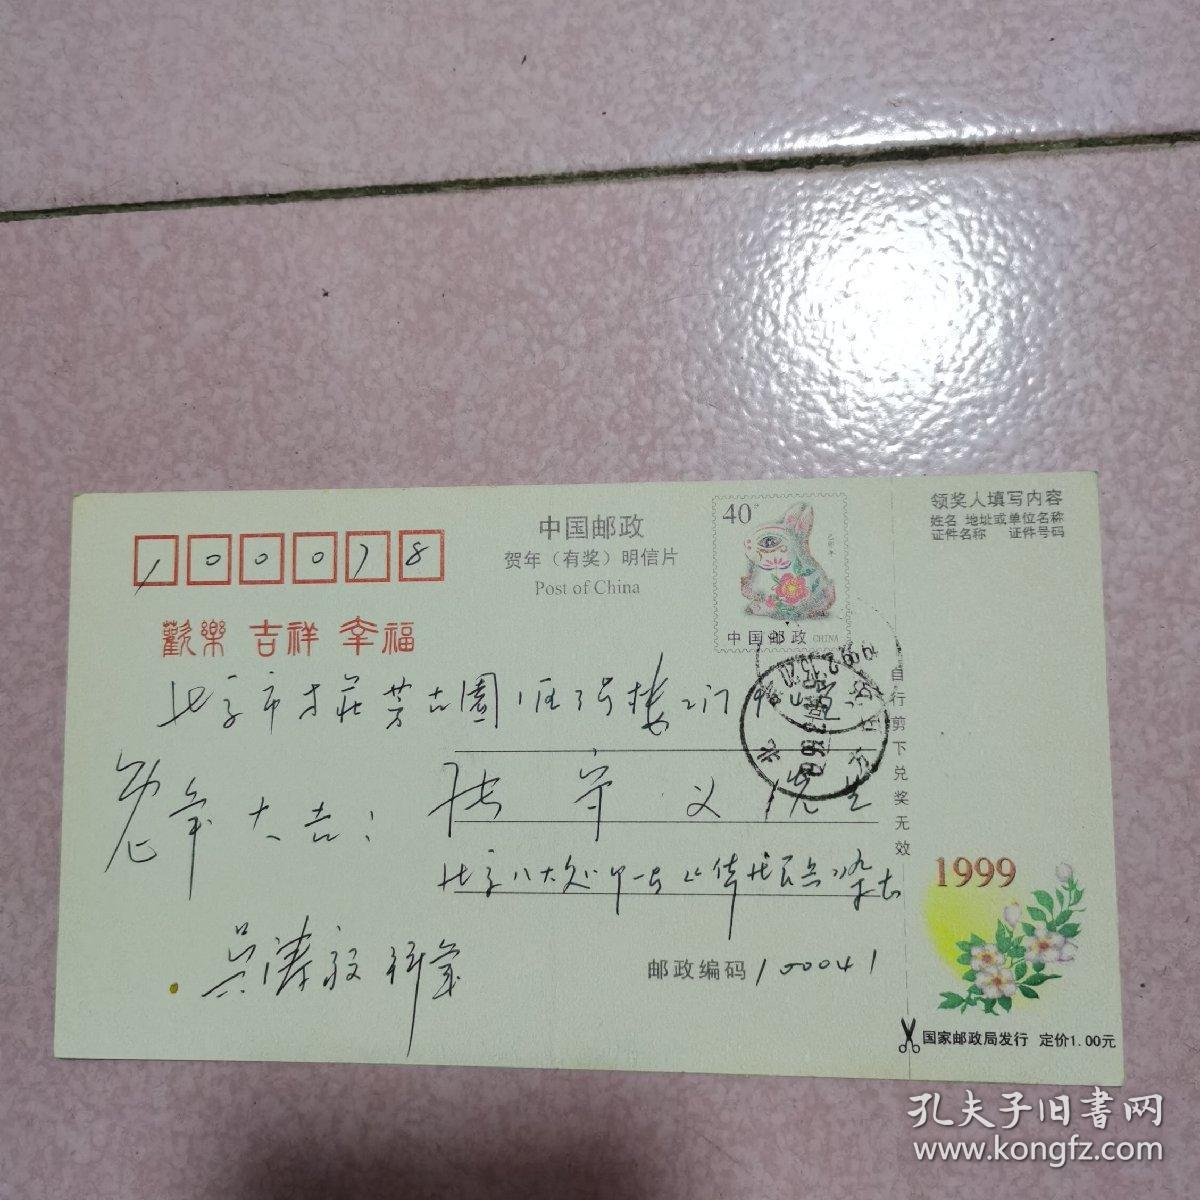 中国邮政
贺年（有奖）明信片
Post of China
40分
己卯年
中国邮政 CHINA
领奖人填写内容
姓名 地址或单位名称
证件名称 证件号码
100078
歡樂 吉祥 幸福
北京市方莊芳古園1区3号楼2门
兔年大吉：
张守义先生
北京八大处甲一号
吴涛毅拜年
邮政编码 100041
自行剪下兑奖无效
1999
国家邮政局发行 定价1.00元
孔夫子旧書网
www.kongfz.com